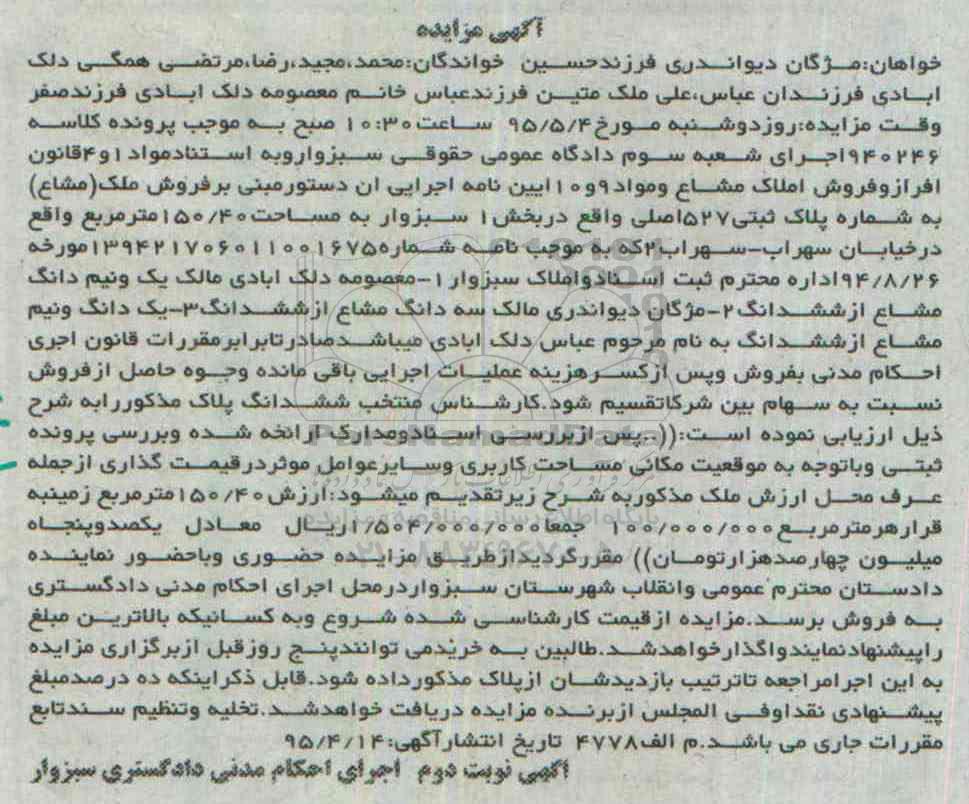 آگهی مزایده
خواهان:مژگان دیواندری فرزندحسین خواندگان:محمد،مجید،رضا،مرتضی همگی دلک
ابادی فرزندان عباس،علی ملک متین فرزندعباس خانم معصومه دلک ابادی فرزندصفر
وقت مزایده:روزدوشنبه مورخ۹۵/۵/۴ ساعت۱۰:۳۰ صبح به موجب پرونده کلاسه
۹۴۰۲۴۶اجرای شعبه سوم دادگاه عمومی حقوقی سبزواروبه استنادمواد۱و۴قانون
افرازوفروش املاک مشاع ومواد۹و۱۰ایین نامه اجرایی ان دستورمبنی برفروش ملک(مشاع)
به شماره پلاک ثبتی۵۲۷اصلی واقع دربخش۱ سبزوار به مساحت۱۵۰/۴۰مترمربع واقع
درخیابان سهراب-سهراب۲که به موجب نامه شماره۱۳۹۴۲۱۷۰۶۰۱۱۰۰۱۶۷۵مورخه
۹۴/۸/۲۶اداره محترم ثبت اسنادواملاک سبزوار۱-معصومه دلک ابادی مالک یک ونیم دانگ
مشاع ازششدانگ۲-مژگان دیواندری مالک سه دانگ مشاع ازششدانگ۳-یک دانگ ونیم
مشاع ازششدانگ به نام مرحوم عباس دلک ابادی میباشدصادرتابرابرمقررات قانون اجری
احکام مدنی بفروش وپس ازکسرهزینه عملیات اجرایی باقی مانده وجوه حاصل ازفروش
نسبت به سهام بین شرکاتقسیم شود.کارشناس منتخب ششدانگ پلاک مذکوررابه شرح
ذیل ارزیابی نموده است:((..پس ازبررسی اسنادومدارک ارائحه شده وبررسی پرونده
ثبتی وباتوجه به موقعیت مکانی مساحت کاربری وسایرعوامل موثردرقیمت گذاری ازجمله
عرف محل ارزش ملک مذکوربه شرح زیرتقدیم میشود:ارزش۱۵۰/۴۰مترمربع زمینبه
قرارهرمترمربع۱۰۰/۰۰۰/۰۰۰ جمعا۱/۵۰۴/۰۰۰/۰۰۰ریال معادل یکصدوپنجاه
میلیون چهارصدهزارتومان)) مقررگردیدازطریق مزایده حضوری وباحضور نماینده
دادستان محترم عمومی وانقلاب شهرستان سبزواردرمحل اجرای احکام مدنی دادگستری
به فروش برسد.مزایده ازقیمت کارشناسی شده شروع وبه کسانیکه بالاترین مبلغ
راپیشنهادنمایندواگذارخواهدشد.طالبین به خریدمی توانندپنج روزقبل ازبرگزاری مزایده
به این اجرامراجعه تاترتیب بازدیدشان ازپلاک مذکورداده شود.قابل ذکراینکه ده درصدمبلغ
پیشنهادی نقداوفی المجلس ازبرنده مزایده دریافت خواهدشد.تخلیه وتنظیم سندتابع
مقررات جاری می باشد.م الف۴۷۷۸ تاریخ انتشارآگهی:۹۵/۴/۱۴
اگهی نوبت دوم اجرای احکام مدنی دادگستری سبزوار